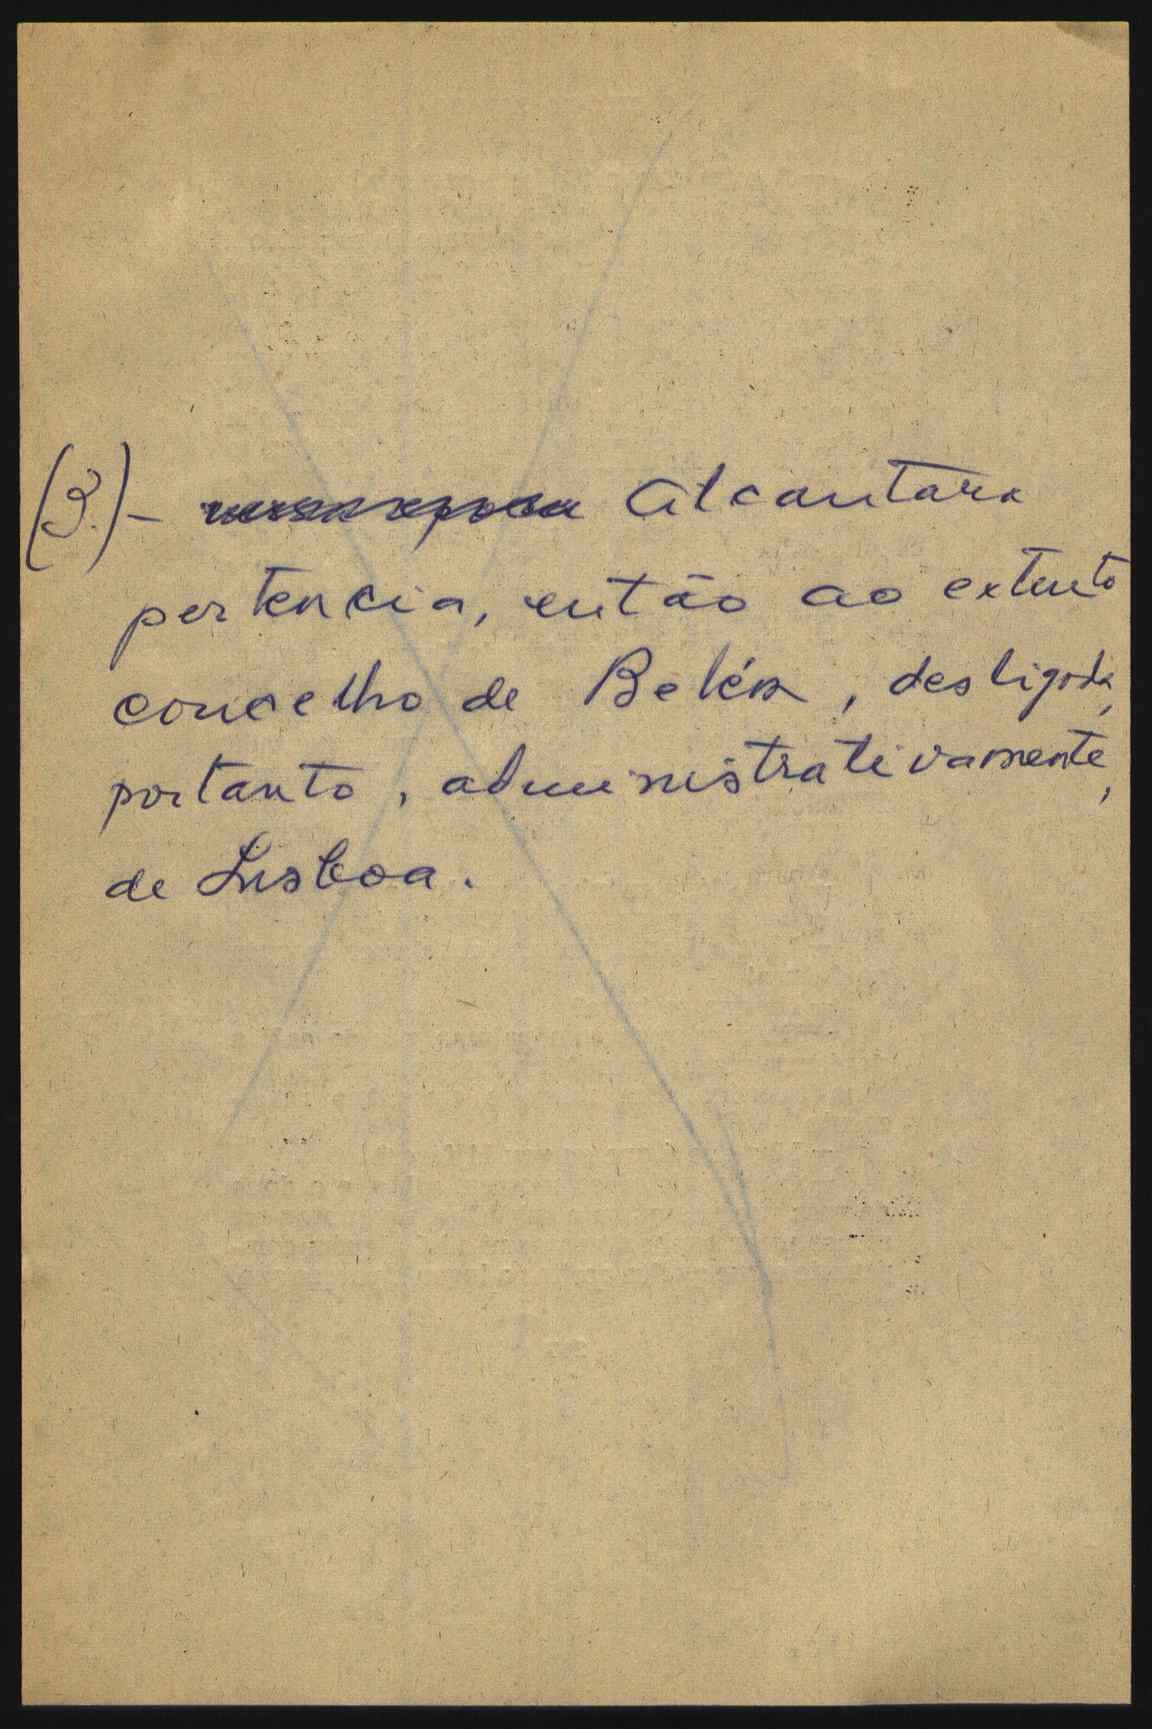 (3.) - Alcantara
pertencia, então ao extinto
concelho de Belém, desligada,
portanto, administrativamente,
de Lisboa.